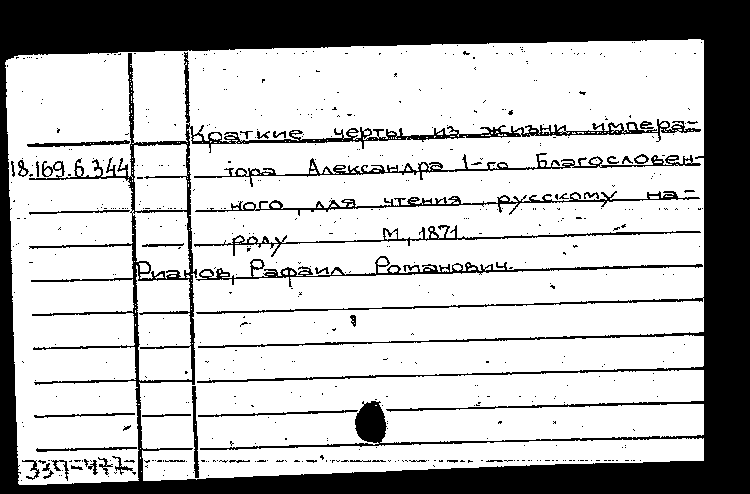 Краткие черты из жизни импера-
18.169.6.344 тора Александра 1-го Благословен-
ного, для чтения русскому на-
роду М., 1871.
Рианов, Рафаил Романович.
339-477-